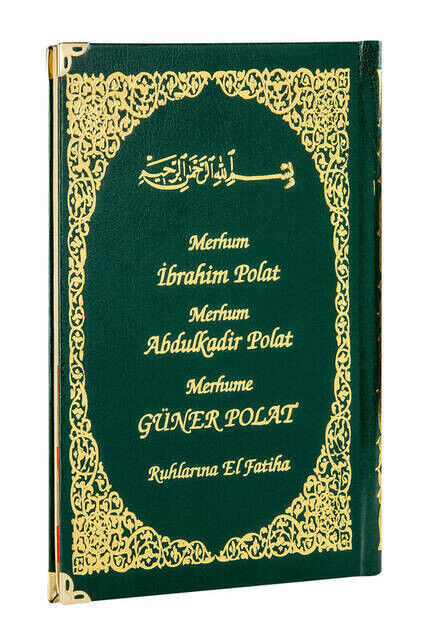 بسم الله الرحمن الرحيم
Merhum
İbrahim Polat
Merhum
Abdulkadir Polat
Merhume
GÜNER POLAT
Ruhlarına El Fatiha